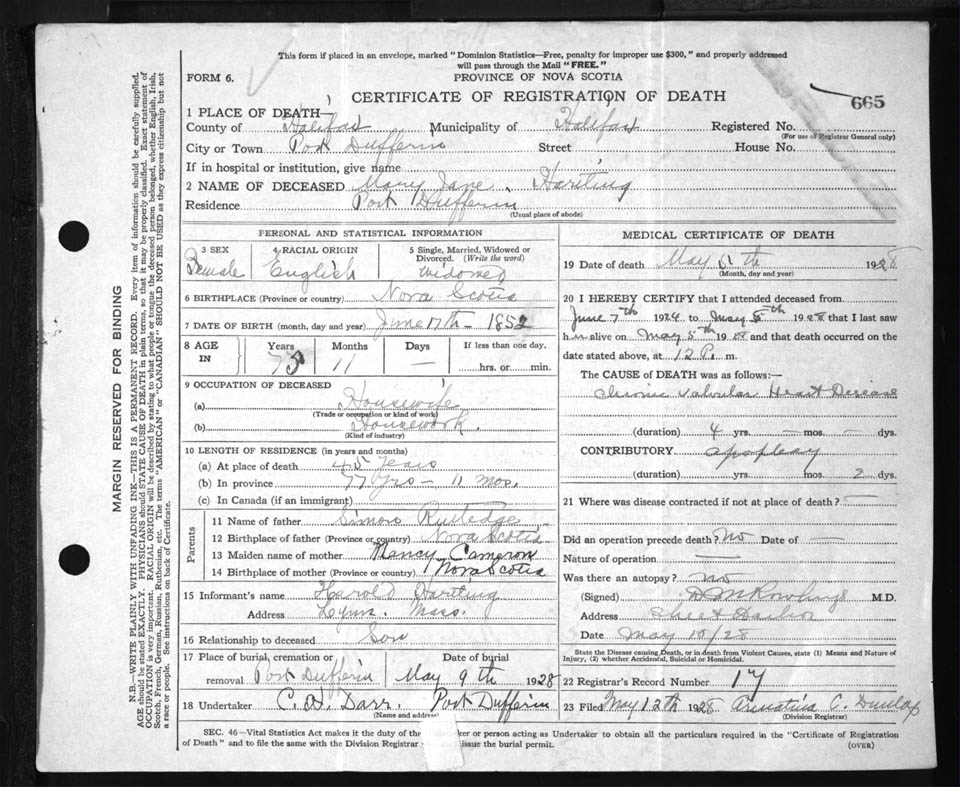 This form if placed in an envelope, marked "Dominion Statistics—Free, penalty for improper use $300," and properly addressed
will pass through the Mail "FREE."
FORM 6.
PROVINCE OF NOVA SCOTIA
CERTIFICATE OF REGISTRATION OF DEATH
665
1 PLACE OF DEATH—
County of Halifax Municipality of Halifax Registered No.
(For use of Registrar General only)
City or Town Port Dufferin Street House No.
If in hospital or institution, give name
2 NAME OF DECEASED Mary Jane Hartling
Residence Port Dufferin
(Usual place of abode)
PERSONAL AND STATISTICAL INFORMATION
3 SEX 4 RACIAL ORIGIN 5 Single, Married, Widowed or
Divorced. (Write the word)
Female English widowed
6 BIRTHPLACE (Province or country) Nova Scotia
7 DATE OF BIRTH (month, day and year) June 17th - 1852
8 AGE IN Years Months Days If less than one day,
75 11 — hrs. or min.
9 OCCUPATION OF DECEASED
(a) Housewife
(Trade or occupation or kind of work)
(b) Housework.
(Kind of industry)
10 LENGTH OF RESIDENCE (in years and months)
(a) At place of death 45 Years
(b) In province 77 yrs - 11 mos.
(c) In Canada (if an immigrant)
Parents
11 Name of father Simon Rutledge
12 Birthplace of father (Province or country) Nova Scotia
13 Maiden name of mother Nancy Cameron
14 Birthplace of mother (Province or country) Nova Scotia
15 Informant's name Harold Hartling
Address Lynn. Mass.
16 Relationship to deceased Son
17 Place of burial, cremation or Date of burial
removal Port Dufferin May 9th 1928
18 Undertaker C. D. Darr. Port Dufferin
(Name and address)
MEDICAL CERTIFICATE OF DEATH
19 Date of death May 5th 1928
(Month, day and year)
20 I HEREBY CERTIFY that I attended deceased from
June 7th 1924 to May 5th 1928 that I last saw
her alive on May 5th 1928 and that death occurred on the
date stated above, at 12 P. m.
The CAUSE of DEATH was as follows:—
Chronic Valvular Heart Disease
(duration) 4 yrs. — mos. — dys.
CONTRIBUTORY apoplexy
(duration) yrs. mos. 2 dys.
21 Where was disease contracted if not at place of death? —
Did an operation precede death? No Date of —
Nature of operation —
Was there an autopsy? no
(Signed) D M Rowlings M.D.
Address Sheet Harbor
Date May 10/28
State the Disease causing Death, or in death from Violent Causes, state (1) Means and Nature of
Injury, (2) whether Accidental, Suicidal or Homicidal.
22 Registrar's Record Number 17
23 Filed May 12th 1928 C. Dunlap
(Division Registrar)
SEC. 46—Vital Statistics Act makes it the duty of the ker or person acting as Undertaker to obtain all the particulars required in the "Certificate of Registration
of Death" and to file the same with the Division Registrar issue the burial permit.
(OVER)
MARGIN RESERVED FOR BINDING
N.B.—WRITE PLAINLY WITH UNFADING INK—THIS IS A PERMANENT RECORD. Every item of information should be carefully supplied.
AGE should be stated EXACTLY. PHYSICIANS should STATE CAUSE OF DEATH in plain terms, so that it may be properly classified. Exact statement of
OCCUPATION is very important. RACIAL ORIGIN will be described by stating to what people or tongue the deceased person belonged, whether English, Irish,
Scotch, French, German, Russian, Ruthenian, etc. The terms "AMERICAN" or "CANADIAN" SHOULD NOT BE USED as they express citizenship but not
a race or people. See instructions on back of Certificate.